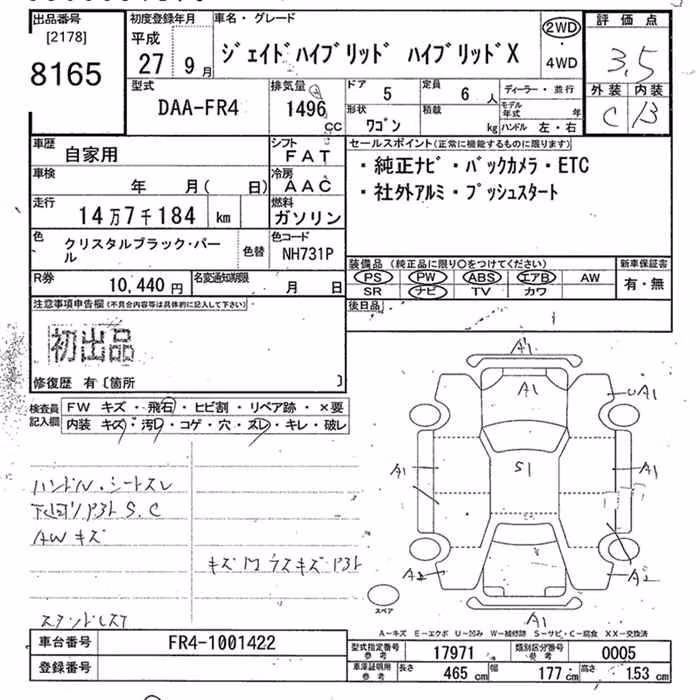 出品番号
[2178]
8165
初度登録年月
平成
27 9月
車名・グレード
ジェイドハイブリッド ハイブリッドX
2WD
・
4WD
評価点
3.5
外装 内装
C B
型式
DAA-FR4
排気量
1496
CC
ドア
5
定員
6人
形状
ワゴン
積載
kg
ディーラー・並行
モデル年式 年
ハンドル 左・右
車歴
自家用
シフト
FAT
車検
年 月( 日)
冷房
AAC
走行
14万7千184 km
燃料
ガソリン
色
クリスタルブラック・パール
色替
色コード
NH731P
R券
10,440円
名変通知期限
月 日
セールスポイント(正常に機能するものに限ります)
・純正ナビ・バックカメラ・ETC
・社外アルミ・プッシュスタート
装備品 (純正品に限り○をつけてください)
PS PW ABS エアB AW
SR ナビ TV カワ
新車保証書
有・無
後日品
注意事項申告欄(不具合内容等は具体的に記入して下さい)
初出品
修復歴 有〔箇所 〕
検査員記入欄
FW キズ・飛石・ヒビ割・リペア跡・×要
内装 キズ・汚レ・コゲ・穴・スレ・キレ・破レ
ハンドル・シートスレ
下回り S.C
AWキズ
A1
A1
UA1
A1
S1
A1
A2
A2
A1
スペア
A-キズ E-エクボ U-凹み W-補修跡 S-サビ・C-腐食 XX-交換済
車台番号
FR4-1001422
登録番号
型式指定番号
参考
17971
類別区分番号
参考
0005
車庫証明用
参考
長さ
465 cm
幅
177 cm
高さ
153 cm